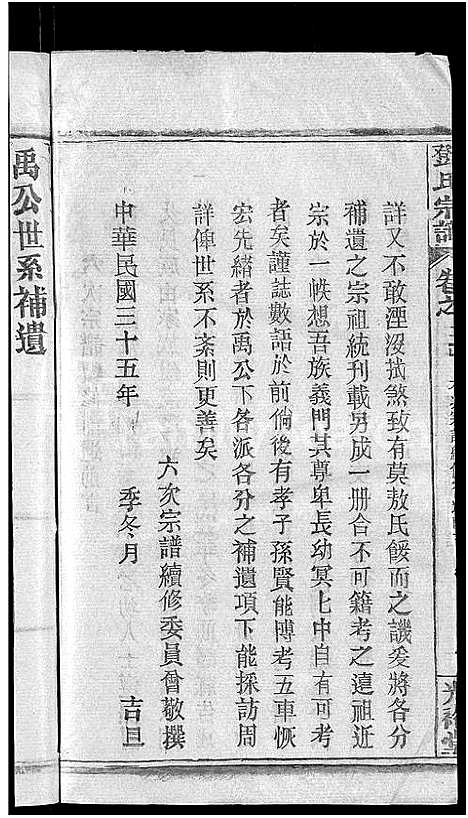 鄧氏宗譜
卷之
詳又不敢湮沒拭煞致有莫敖氏餒而之譏爰將各分
補遺之宗祖統刊載另成一册合不可籍考之遠祖近
宗於一帙想吾族義門其尊卑長幼冥冥中自有可考
者矣謹誌數語於前倘後有孝子孫賢能博考五車恢
宏先緒者於禹公下各派各分之補遺項下能採訪周
詳俾世系不紊則更善矣
六次宗譜續修委員會敬撰
中華民國三十五年 季冬月 吉旦
禹公世系補遺